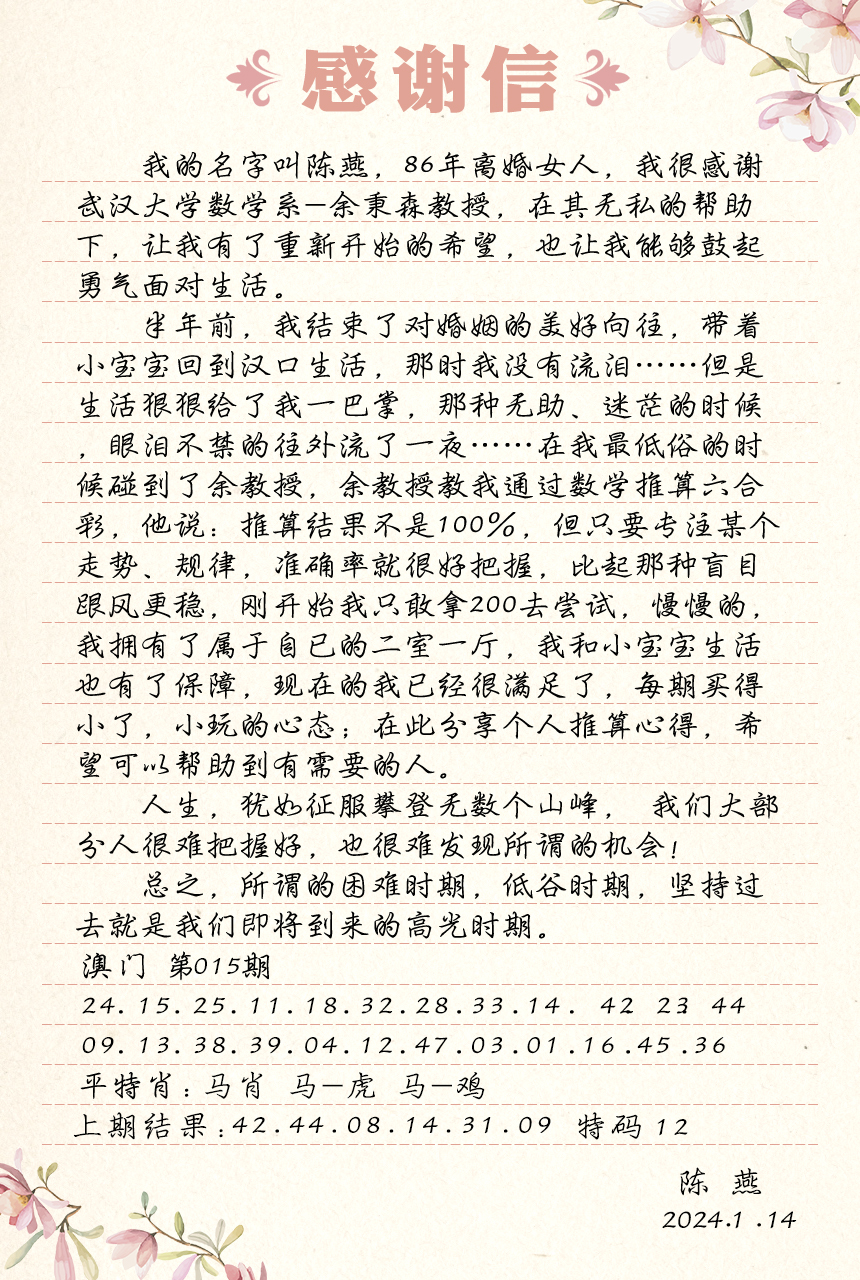 感谢信
我的名字叫陈燕，86年离婚女人，我很感谢
武汉大学数学系—余秉森教授，在其无私的帮助
下，让我有了重新开始的希望，也让我能够鼓起
勇气面对生活。
半年前，我结束了对婚姻的美好向往，带着
小宝宝回到汉口生活，那时我没有流泪……但是
生活狠狠给了我一巴掌，那种无助、迷茫的时候
，眼泪不禁的往外流了一夜……在我最低俗的时
候碰到了余教授，余教授教我通过数学推算六合
彩，他说：推算结果不是100%，但只要专注某个
走势、规律，准确率就很好把握，比起那种盲目
跟风更稳，刚开始我只敢拿200去尝试，慢慢的，
我拥有了属于自已的二室一厅，我和小宝宝生活
也有了保障，现在的我已经很满足了，每期买得
小了，小玩的心态；在此分享个人推算心得，希
望可以帮助到有需要的人。
人生，犹如征服攀登无数个山峰， 我们大部
分人很难把握好，也很难发现所谓的机会！
总之，所谓的困难时期，低谷时期，坚持过
去就是我们即将到来的高光时期。
澳门 第015期
24.15.25.11.18.32.28.33.14. 42. 23. 44
09.13.38.39.04.12.47.03.01.16.45.36
平特肖：马肖 马—虎 马—鸡
上期结果：42.44.08.14.31.09 特码 12
陈 燕
2024.1.14